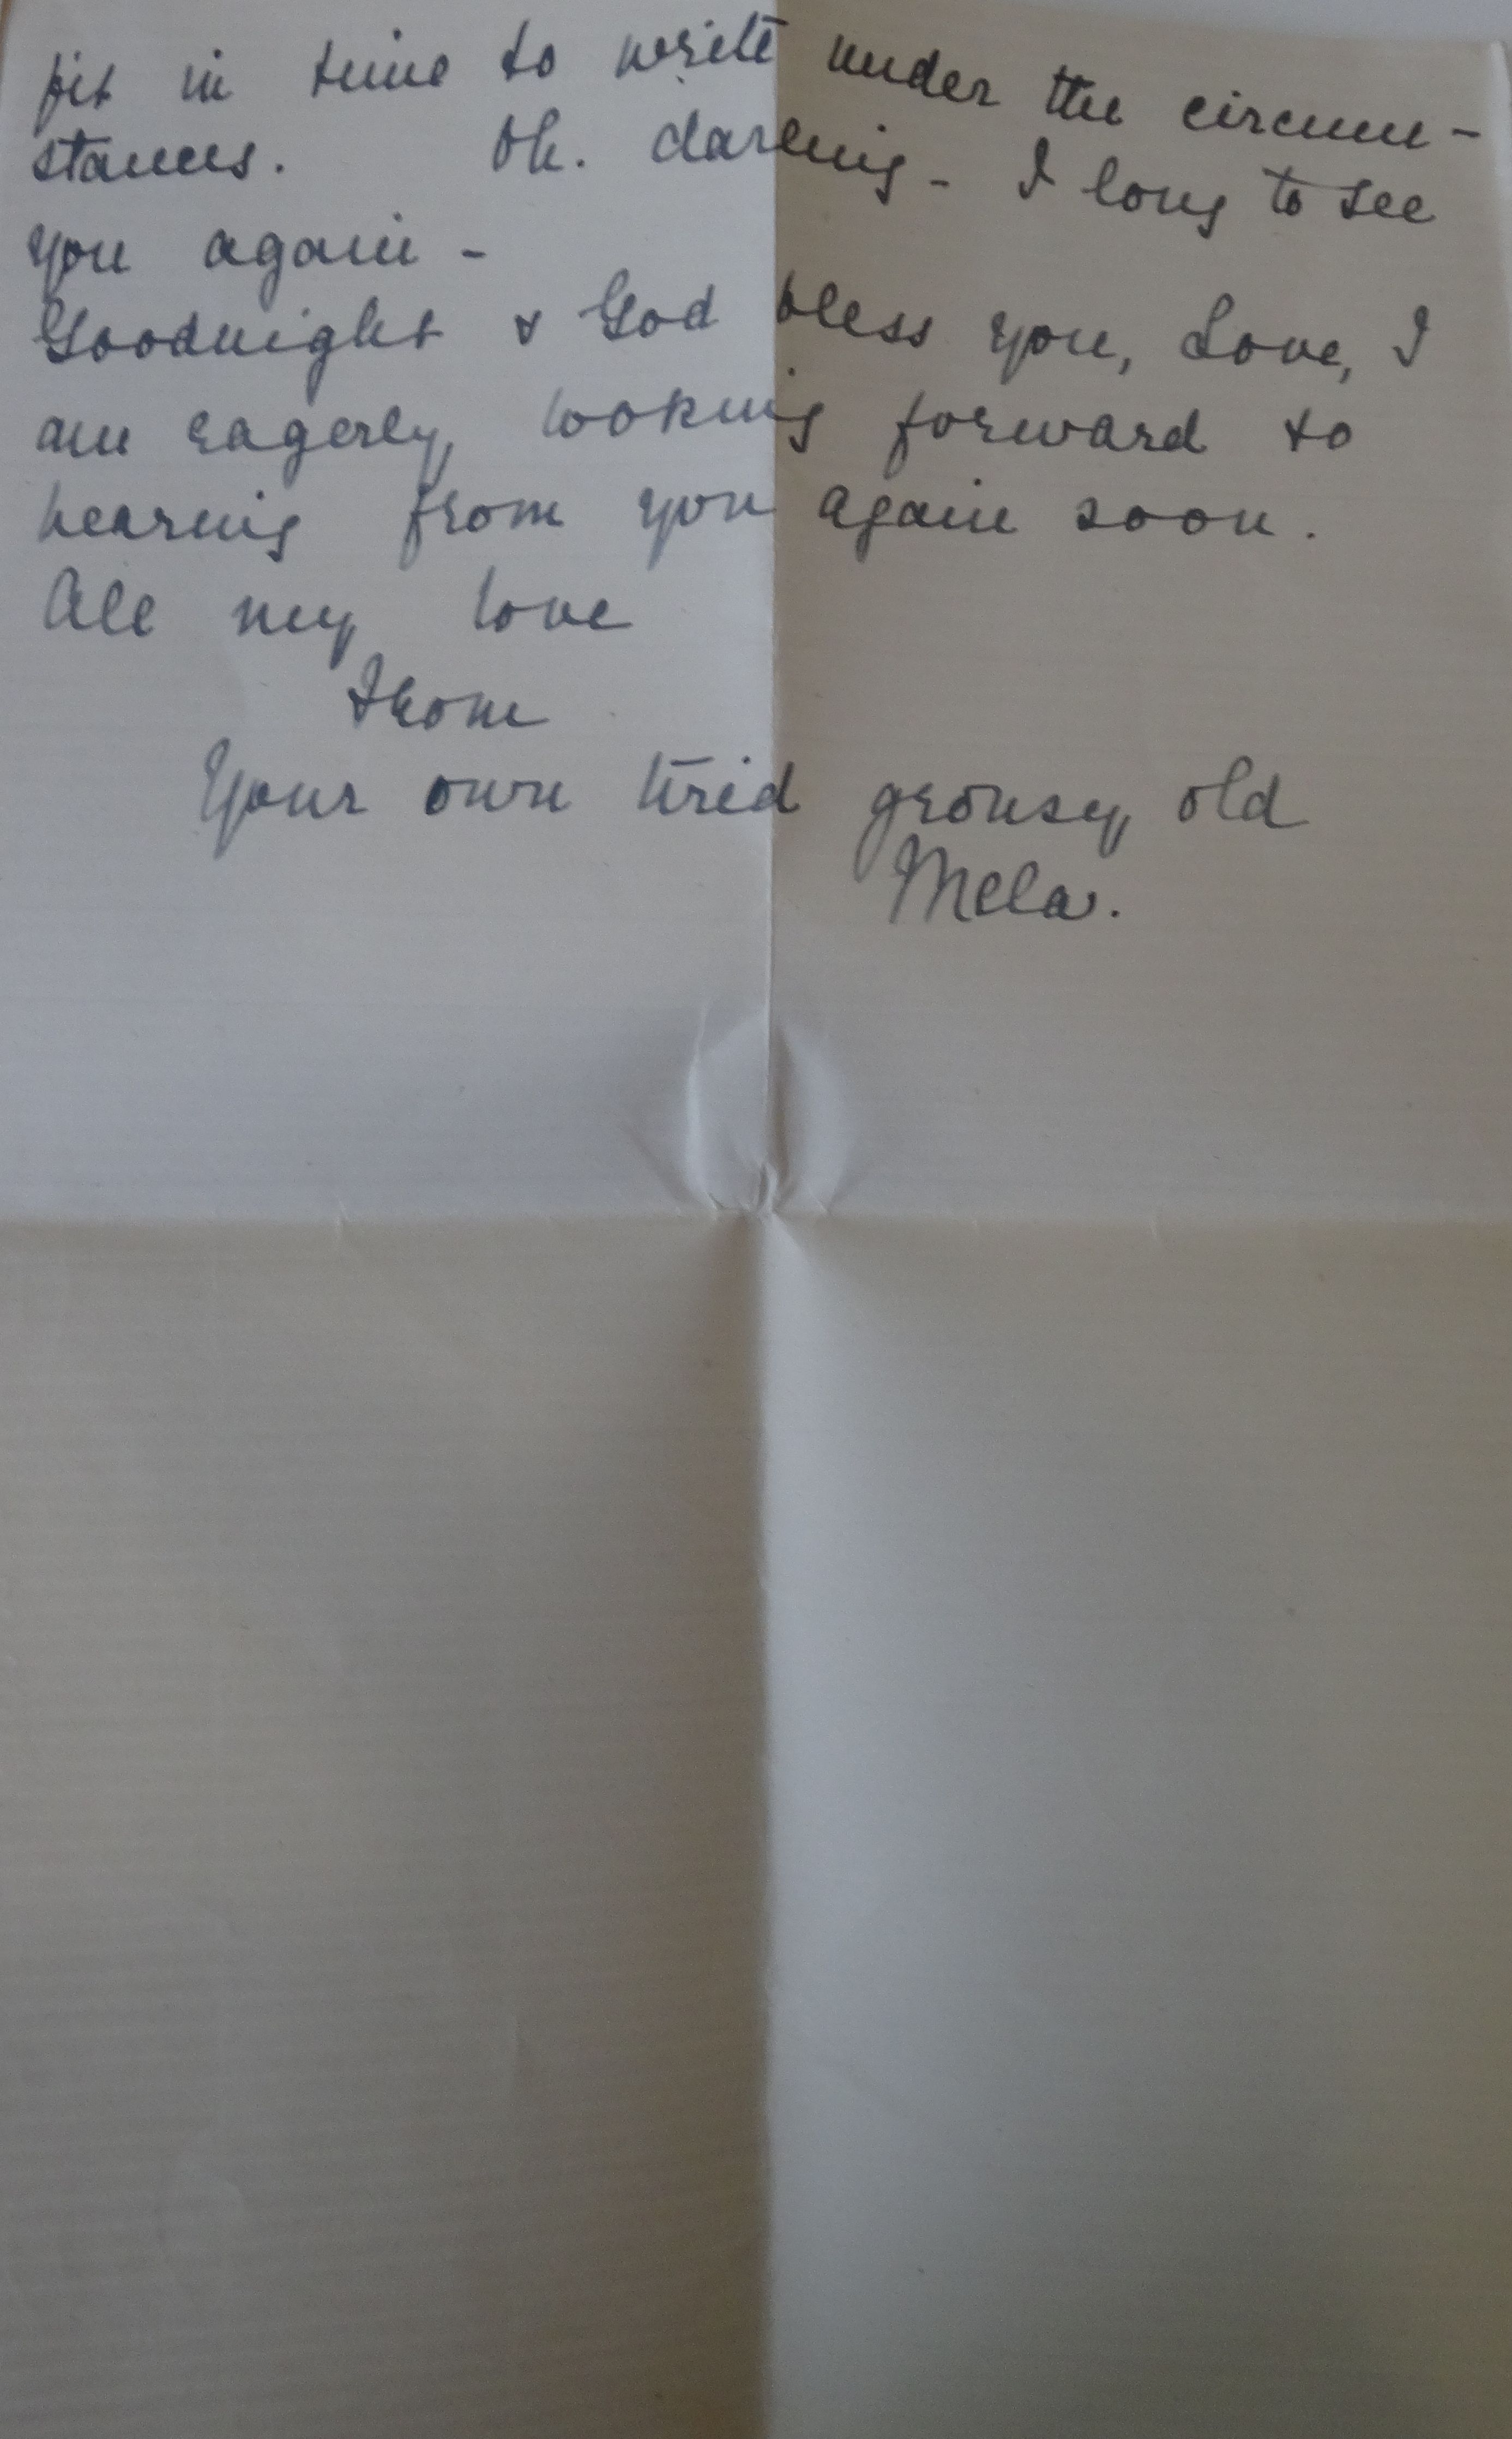 fit in time to write under the circum-
stances. Oh. darling - I long to see
you again -
Goodnight & God bless you, Love, I
am eagerly looking forward to
hearing from you again soon.
All my love
From
Your own tired grousy old
Mela.